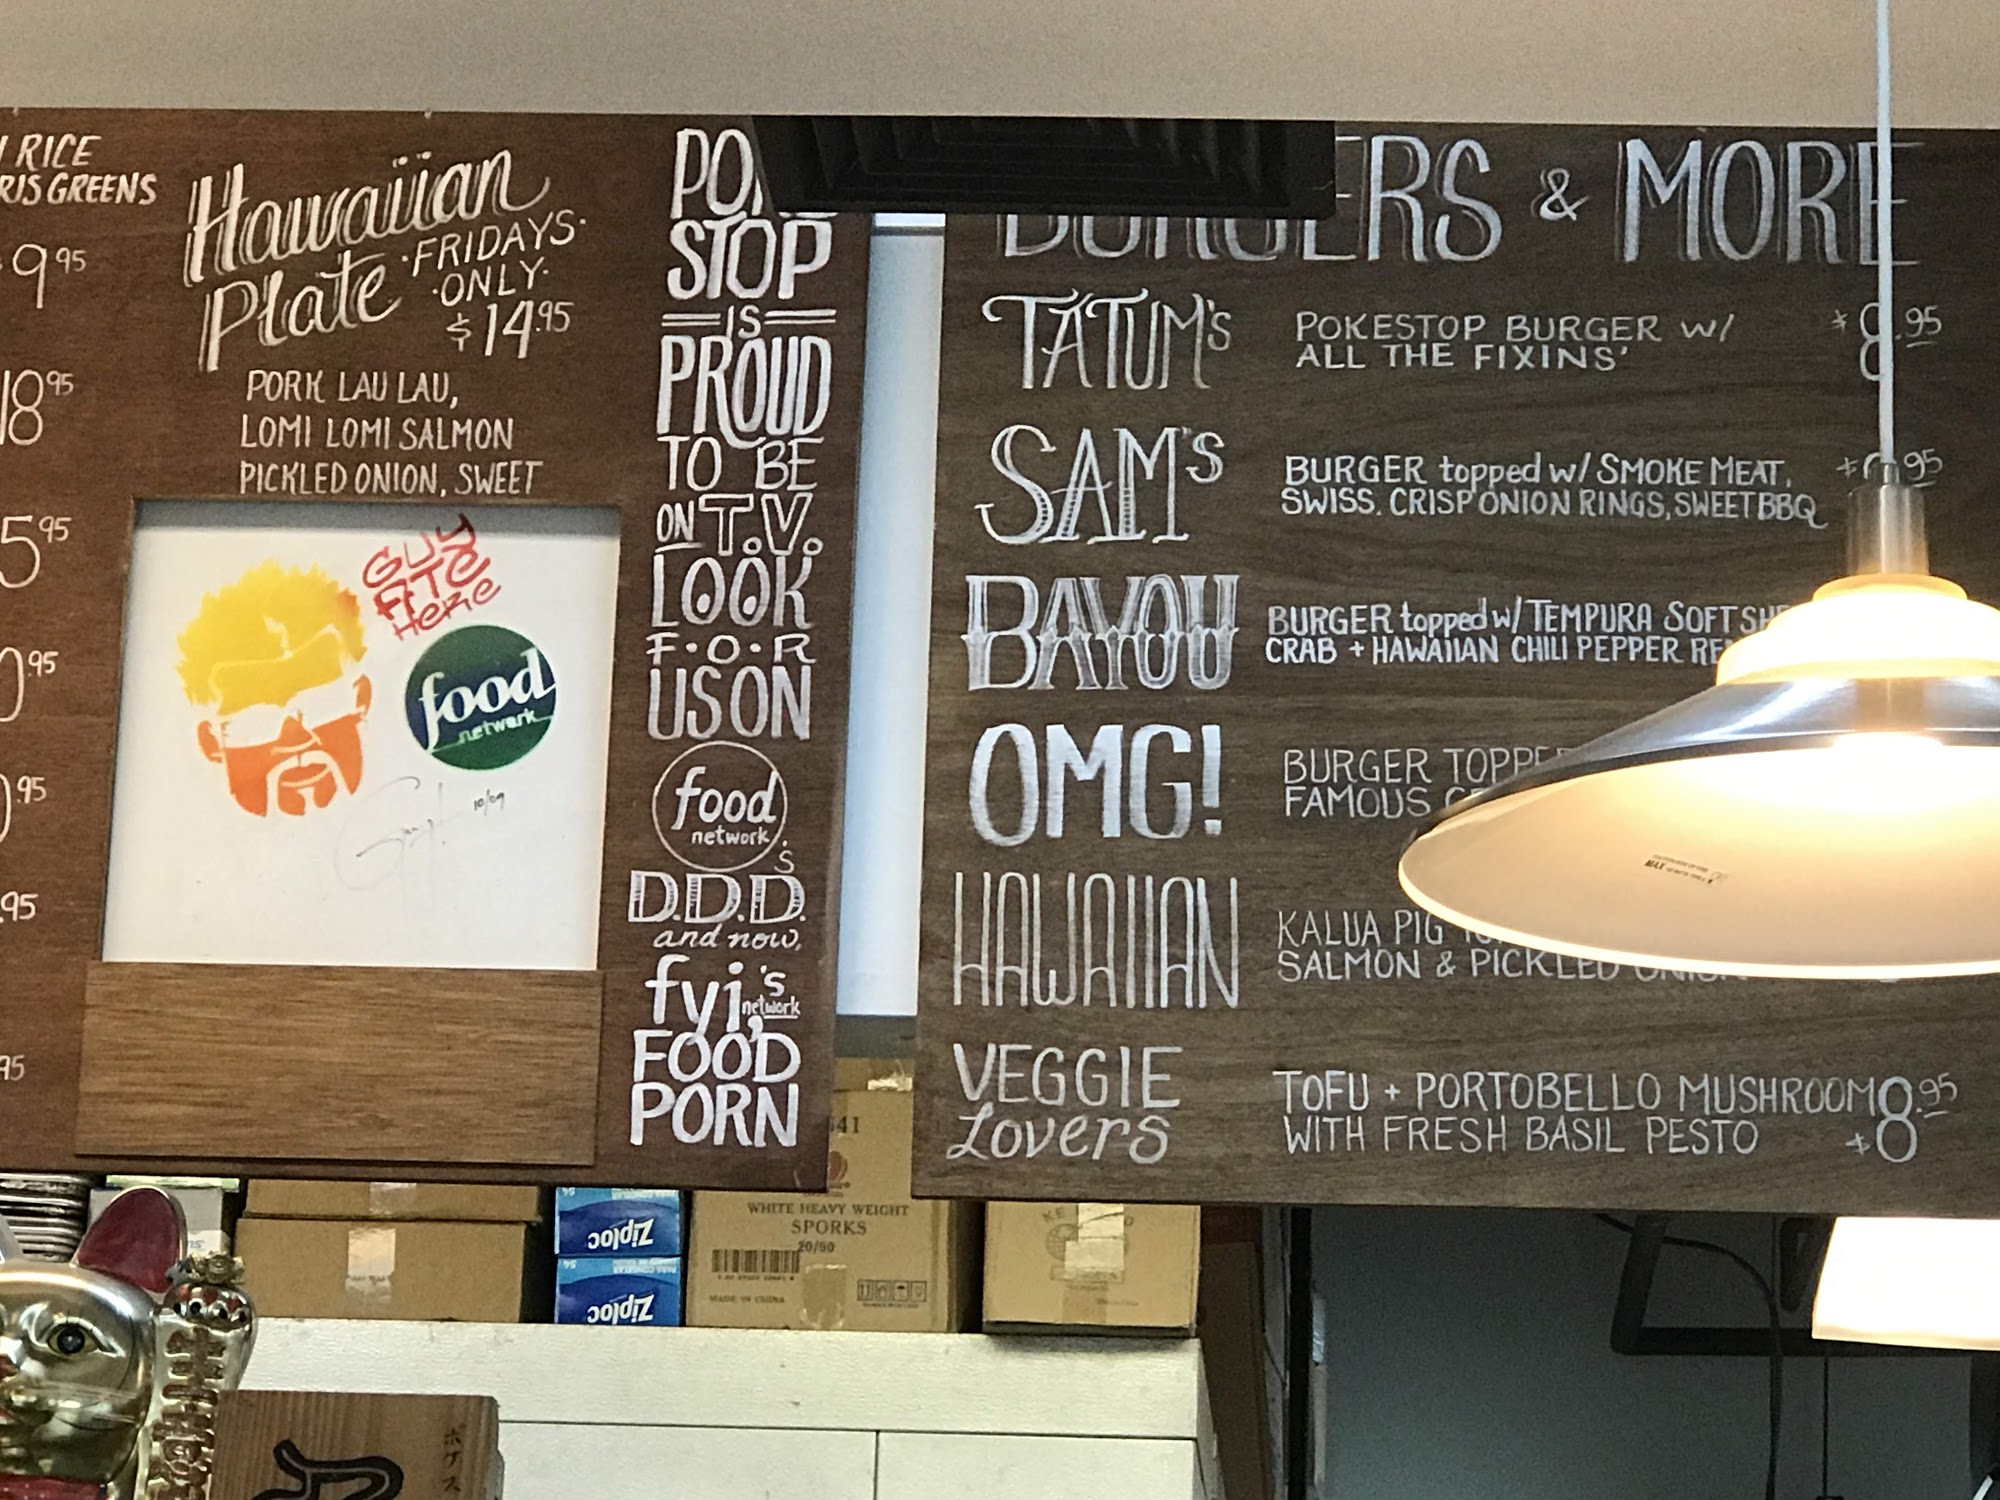 RICE
GREENS
9.95
18.95
.95
.95
.95
.95
Hawaiian
Plate
·FRIDAYS·
·ONLY·
$14.95
PORK LAU LAU,
LOMI LOMI SALMON
PICKLED ONION, SWEET
GUY
ATE
HERE
food
network
10/09
STOP
IS
PROUD
TO BE
ON T.V.
LOOK
F·O·R
US ON
food
network's
D.D.D.
and now,
fyi,'s
network
FOOD
PORN
& MORE
TATUM's
POKESTOP BURGER W/
ALL THE FIXINS'
$8.95
SAM's
BURGER topped w/ SMOKE MEAT,
SWISS. CRISP ONION RINGS, SWEET BBQ
.95
BAYOU
BURGER topped w/ TEMPURA SOFT
CRAB + HAWAIIAN CHILI PEPPER
OMG!
BURGER
FAMOUS
HAWAIIAN
KALUA PIG
SALMON & PICKLED
VEGGIE
Lovers
TOFU + PORTOBELLO MUSHROOM
WITH FRESH BASIL PESTO
$8.95
MAX
Ziploc
Ziploc
WHITE HEAVY WEIGHT
SPORKS
20/50
MADE IN CHINA
ポケス